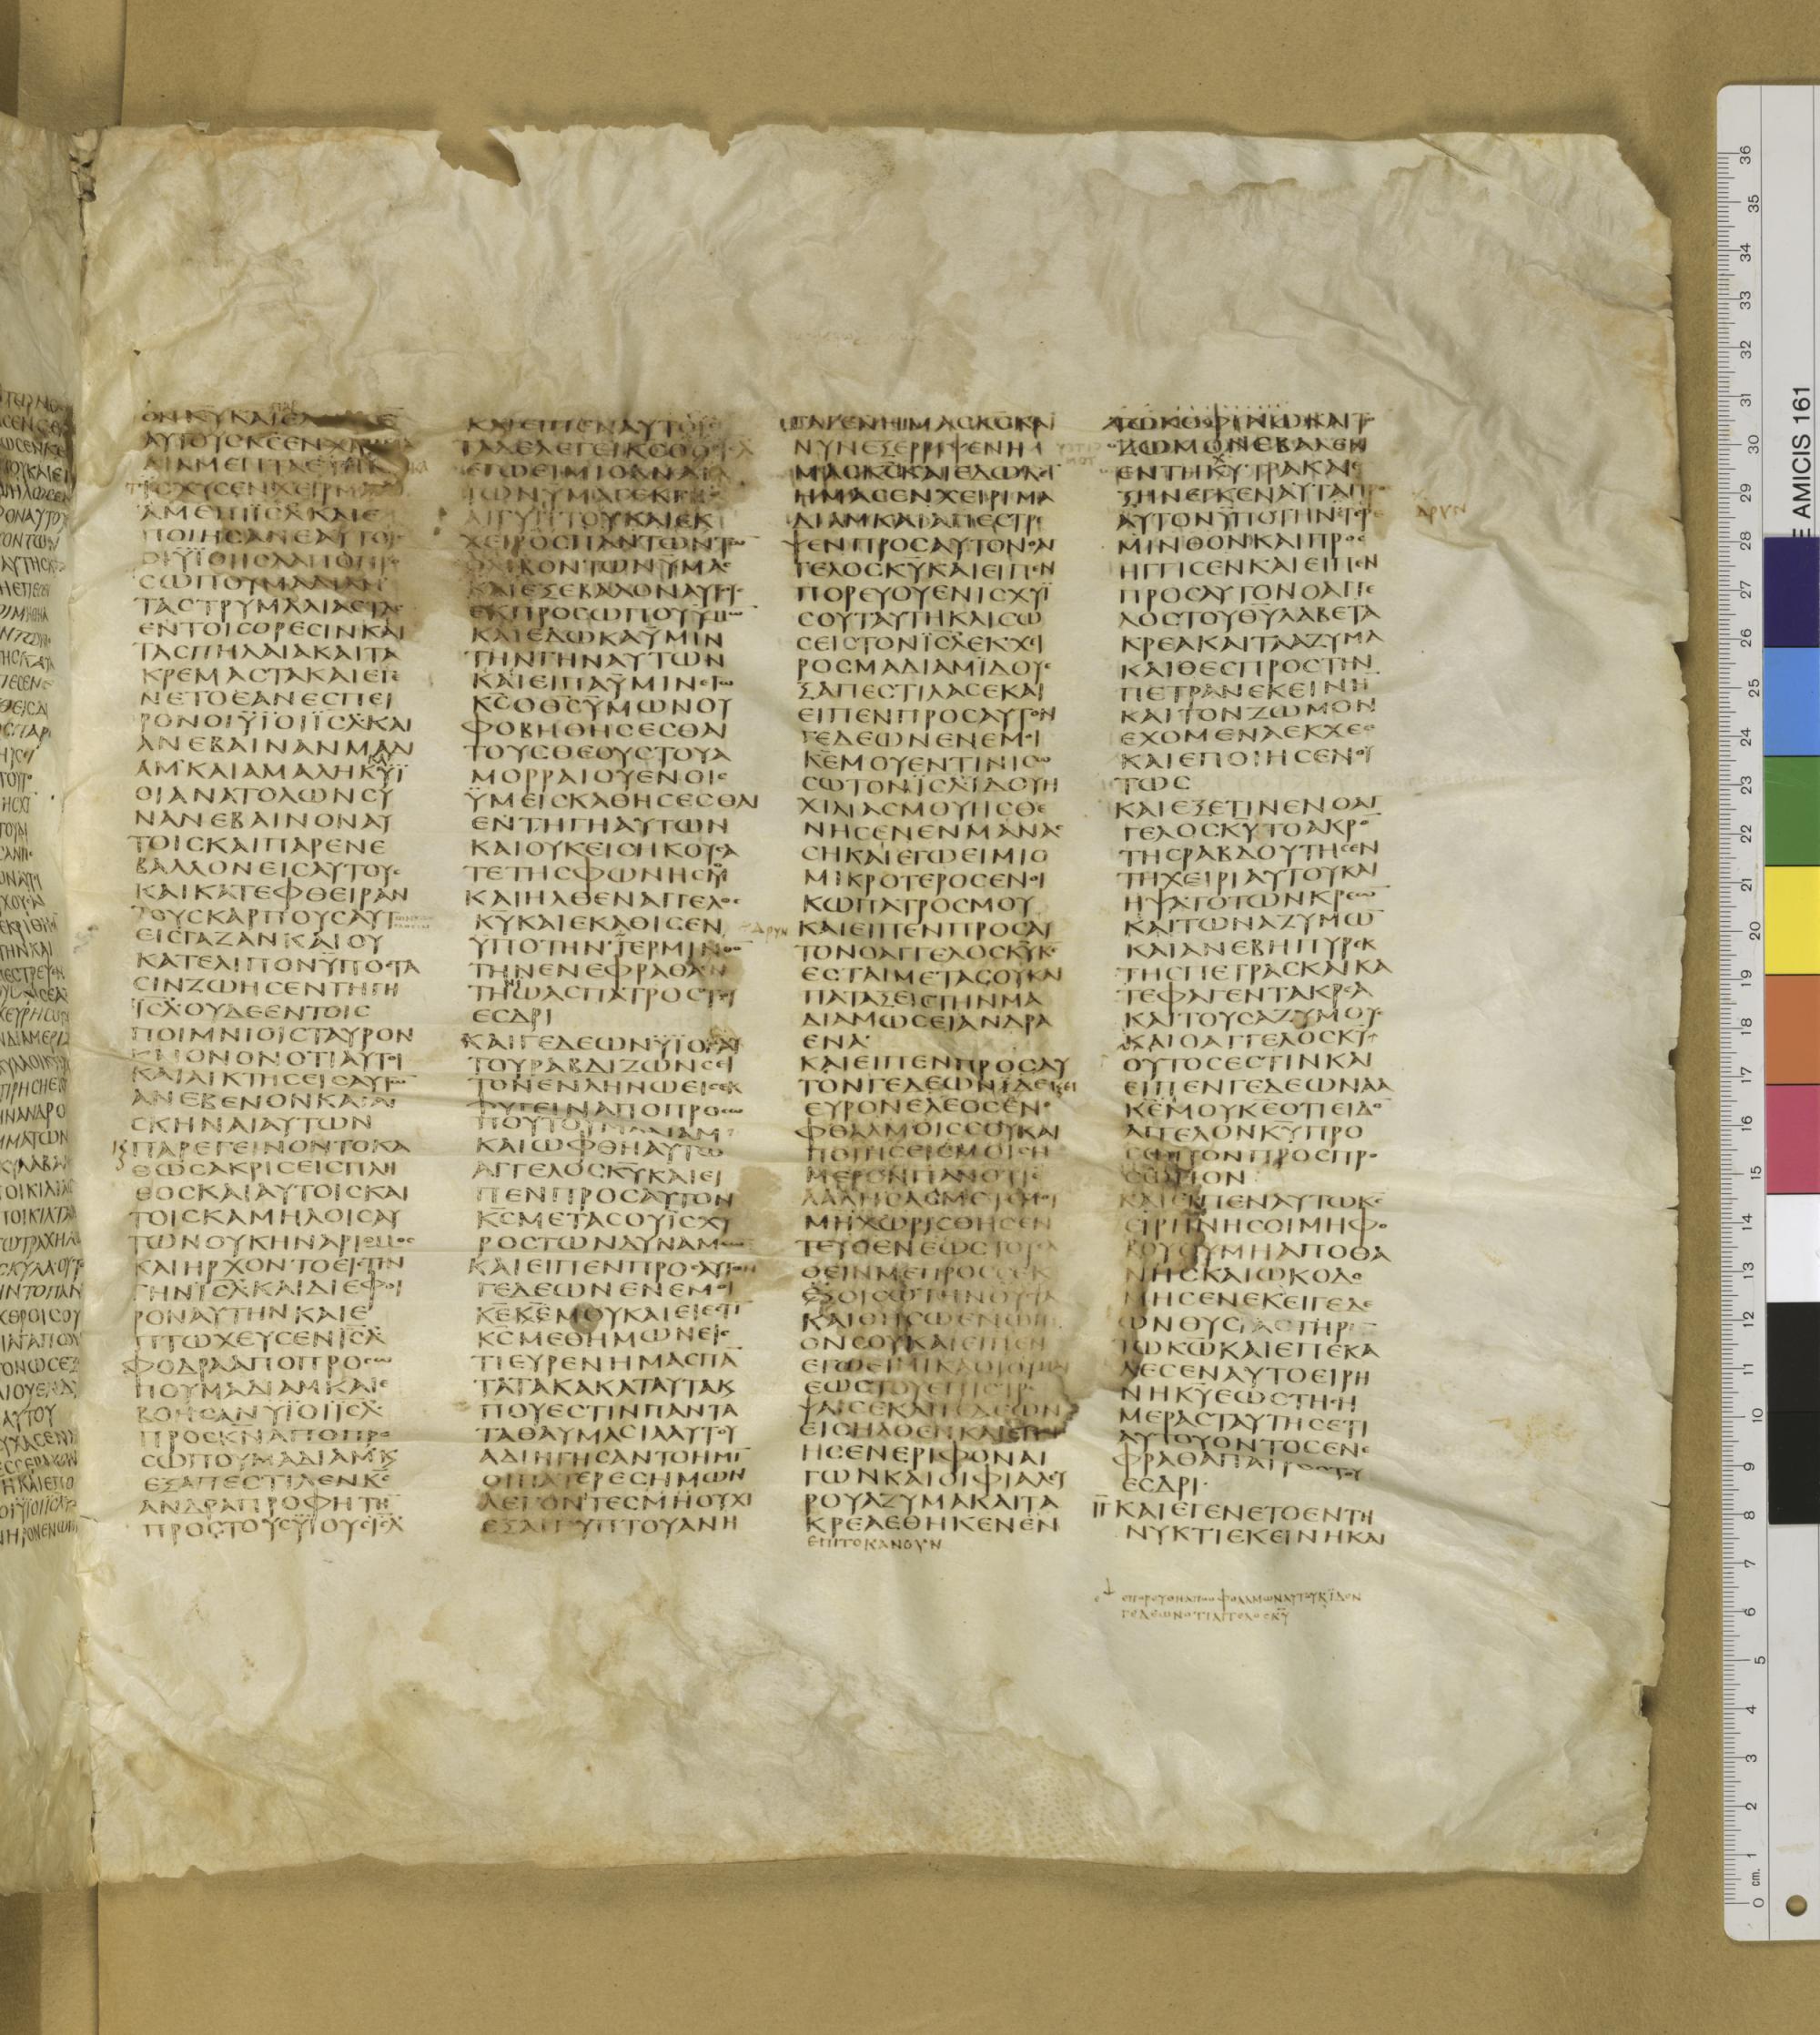 ΟΝΚΥΚΑΙ
ΑΥΤΟΥϹΚϹΕΝΧ
ΔΙΑΜΕΠΤΑΕΤΗ
ΙϹΧΥϹΕΝΧΕΙΡΜΑ
ΔΙΑΜΕΠΙΙϹΛΚΑΙΕ
ΠΟΙΗϹΑΝΕΑΥΤΟΙ
ΟΙΫΙΟΙΙΗϹΛΑΠΟΠΡ
ϹΩΠΟΥΜΑΔΙΑΜ
ΤΑϹΤΡΥΜΑΛΙΑϹΤΑ
ΕΝΤΟΙϹΟΡΕϹΙΝΚΑΙ
ΤΑϹΠΗΛΑΙΑΚΑΙΤΑ
ΚΡΕΜΑϹΤΑΚΑΙΕΓΕ
ΝΕΤΟΕΑΝΕϹΠΕΙ
ΡΟΝΟΙΫΙΟΙΙϹΛΚΑΙ
ΑΝΕΒΑΙΝΑΝΜΑΔΙ
ΑΜΚΑΙΑΜΑΛΗΚΚΑΙΫΪ
ΟΙΑΝΑΤΟΛΩΝϹΥ
ΝΑΝΕΒΑΙΝΟΝΑΥ
ΤΟΙϹΚΑΙΠΑΡΕΝΕ
ΒΑΛΛΟΝΕΙϹΑΥΤΟΥϹ
ΚΑΙΚΑΤΕΦΘΕΙΡΑΝ
ΤΟΥϹΚΑΡΠΟΥϹΑΥΤ
ΕΙϹΓΑΖΑΝΚΑΙΟΥ
ΚΑΤΕΛΙΠΟΝΫΠΟϹΤΑ
ϹΙΝΖΩΗϹΕΝΤΗΓΗ
ΙϹΛΟΥΔΕΕΝΤΟΙϹ
ΠΟΙΜΝΙΟΙϹΤΑΥΡΟΝ
ΚΑΙΟΝΟΝΟΤΙΑΥΤΟΙ
ΚΑΙΑΙΚΤΗϹΕΙϹΑΥΤΩ
ΑΝΕΒΕΝΟΝΚΑΙΑΙ
ϹΚΗΝΑΙΑΥΤΩΝ
ΠΑΡΕΓΕΙΝΟΝΤΟΚΑ
ΘΩϹΑΚΡΙϹΕΙϹΠΛΗ
ΘΟϹΚΑΙΑΥΤΟΙϹΚΑΙ
ΤΟΙϹΚΑΜΗΛΟΙϹΑΥ
ΤΩΝΟΥΚΗΝΑΡΙΘΜΟϹ
ΚΑΙΗΡΧΟΝΤΟΕΙϹΤΗΝ
ΓΗΝΙϹΛΚΑΙΔΙΕΦΘΙ
ΡΟΝΑΥΤΗΝΚΑΙΕ
ΠΤΩΧΕΥϹΕΝΙϹΛ
ϹΦΟΔΡΑΑΠΟΠΡΟϹΩ
ΠΟΥΜΑΔΙΑΜΚΑΙΕ
ΒΟΗϹΑΝΫΙΟΙΙϹΛ
ΠΡΟϹΚΝΑΠΟΠΡΟ
ϹΩΠΟΥΜΑΔΙΑΜΚ
ΕΞΑΠΕϹΤΙΛΕΝΚϹ
ΑΝΔΡΑΠΡΟΦΗΤΗ
ΠΡΟϹΤΟΥϹΫΙΟΥϹΙϹΛ
ΚΑΙΕΙΠΕΝΑΥΤΟΙϹ
ΤΑΔΕΛΕΓΕΙΚϹΟΘϹΙϹΛ
ΕΓΩΕΙΜΙΟΑΝΑΓΑ
ΓΩΝΥΜΑϹΕΚΓΗϹ
ΑΙΓΥΠΤΟΥΚΑΙΕΚ
ΧΕΙΡΟϹΠΑΝΤΩΝΤΩ
ΘΛΙΒΟΝΤΩΝΥΜΑϹ
ΚΑΙΕΞΕΒΑΛΟΝΑΥΤΟΥϹ
ΕΚΠΡΟϹΩΠΟΥΫΜΩ
ΚΑΙΕΔΩΚΑΫΜΙΝ
ΤΗΝΓΗΝΑΥΤΩΝ
ΚΑΙΕΙΠΑΫΜΙΝΕΓΩ
ΚϹΟΘϹΥΜΩΝΟΥ
ΦΟΒΗΘΗϹΕϹΘΑΙ
ΤΟΥϹΘΕΟΥϹΤΟΥΑ
ΜΟΡΡΑΙΟΥΕΝΟΙϹ
ΫΜΕΙϹΚΑΘΗϹΕϹΘΑΙ
ΕΝΤΗΓΗΑΥΤΩΝ
ΚΑΙΟΥΚΕΙϹΗΚΟΥϹΑ
ΤΕΤΗϹΦΩΝΗϹΜ
ΚΑΙΗΛΘΕΝΑΓΓΕΛΟϹ
ΚΥΚΑΙΕΚΑΘΙϹΕΝ
ΫΠΟΤΗΝΤΕΡΜΙΝΘΟ
ΤΗΝΕΝΕΦΡΑΘΑ
ΤΗΝΙΩΑϹΠΑΤΡΟϹΤΟΥ
ΕϹΔΡΙ
ΚΑΙΓΕΔΕΩΝΫΙΟϹΑΥ
ΤΟΥΡΑΒΔΙΖΩΝϹΕΙ
ΤΟΝΕΝΛΗΝΩΕΙϹΕΚ
ΦΥΓΕΙΝΑΠΟΠΡΟϹΩ
ΠΟΥΤΟΥΜΑΔΙΑΜ
ΚΑΙΩΦΘΗΑΥΤΩ
ΑΓΓΕΛΟϹΚΥΚΑΙΕΙ
ΠΕΝΠΡΟϹΑΥΤΟΝ
ΚϹΜΕΤΑϹΟΥΙϹΧΥ
ΡΟϹΤΩΝΔΥΝΑΜΕΩ
ΚΑΙΕΙΠΕΝΠΡΟϹΑΥΤΟΝ
ΓΕΔΕΩΝΕΝΕΜΟΙ
ΚΕΚΕΜΟΥΚΑΙΕΙΕϹΤΙ
ΚϹΜΕΘΗΜΩΝΕΙϹ
ΤΙΕΥΡΕΝΗΜΑϹΠΑ
ΤΑΤΑΚΑΚΑΤΑΥΤΑΚ
ΠΟΥΕϹΤΙΝΠΑΝΤΑ
ΤΑΘΑΥΜΑϹΙΑΑΥΤΟΥ
ΑΔΙΗΓΗϹΑΝΤΟΗΜΙ
ΟΙΠΑΤΕΡΕϹΗΜΩΝ
ΛΕΓΟΝΤΕϹΜΗΟΥΧΙ
ΕΞΑΙΓΥΠΤΟΥΑΝΗ
ΓΑΓΕΝΗΜΑϹΚϹΚΑΙ
ΝΥΝΕΞΕΡΡΙΨΕΝΗ
ΜΑϹΚϹΚΑΙΕΔΩΚΕ
ΗΜΑϹΕΝΧΕΙΡΙΜΑ
ΔΙΑΜΚΑΙΑΠΕϹΤΡΕ
ΨΕΝΠΡΟϹΑΥΤΟΝΟΑΓ
ΓΕΛΟϹΚΥΚΑΙΕΙΠΕΝ
ΠΟΡΕΥΟΥΕΝΙϹΧΥΪ
ϹΟΥΤΑΥΤΗΚΑΙϹΩ
ϹΕΙϹΤΟΝΙϹΛΕΚΧΙ
ΡΟϹΜΑΔΙΑΜΙΔΟΥΕ
ΞΑΠΕϹΤΙΛΑϹΕΚΑΙ
ΕΙΠΕΝΠΡΟϹΑΥΤΟΝ
ΓΕΔΕΩΝΕΝΕΜΟΙ
ΚΕΜΟΥΕΝΤΙΝΙϹΩ
ϹΩΤΟΝΙϹΛΙΔΟΥΗ
ΧΙΛΙΑϹΜΟΥΗϹΘΕ
ΝΗϹΕΝΕΝΜΑΝΑϹ
ϹΗΚΑΙΕΓΩΕΙΜΙΟ
ΜΙΚΡΟΤΕΡΟϹΕΝΟΙ
ΚΩΠΑΤΡΟϹΜΟΥ
ΚΑΙΕΙΠΕΝΠΡΟϹΑΥ
ΤΟΝΟΑΓΓΕΛΟϹΚΥΚϹ
ΕϹΤΑΙΜΕΤΑϹΟΥΚΑΙ
ΠΑΤΑΞΕΙϹΤΗΝΜΑ
ΔΙΑΜΩϹΕΙΑΝΔΡΑ
ΕΝΑ
ΚΑΙΕΙΠΕΝΠΡΟϹΑΥ
ΤΟΝΓΕΔΕΩΝΙΔΕ
ΕΥΡΟΝΕΛΕΟϹΕΝΟ
ΦΘΑΛΜΟΙϹϹΟΥΚΑΙ
ΠΟΙΗϹΕΙϹΜΟΙϹΗ
ΜΕΡΟΝΠΑΝΟΤΙ
ΛΑΛΗϹΑϹΜΕΤΕΜΟΥ
ΜΗΧΩΡΙϹΘΗϹΕΝ
ΤΕΥΘΕΝΕΩϹΤΟΥ
ΘΕΙΝΜΕΠΡΟϹϹΕΚ
ΕΞΟΙϹΩΤΗΝΘΥϹΙΑ
ΚΑΙΘΗϹΩΕΝΩΠΙ
ΟΝϹΟΥΚΑΙΕΙΠΕΝ
ΕΓΩΕΙΜΙΚΑΘΙΟΜΑΙ
ΕΩϹΤΟΥΕΠΙϹΤΡΕ
ΨΑΙϹΕΚΑΙΓΕΔΕΩΝ
ΕΙϹΗΛΘΕΝΚΑΙΕΠΟΙ
ΗϹΕΝΕΡΙΦΟΝΑΙ
ΓΩΝΚΑΙΟΙΦΙΑΛΕΥ
ΡΟΥΑΖΥΜΑΚΑΙΤΑ
ΚΡΕΑΕΘΗΚΕΝΕΝ
ΕΠΙΤΟΚΑΝΟΥΝ
ΤΩΚΟΦΙΝΩΚΑΙΤ
ΖΩΜΟΝΕΒΑΛΕΝ
ΕΝΤΗΚΥΤΡΑΚΑΙΕ
ΞΗΝΕΓΚΕΝΑΥΤΑΠΡ
ΑΥΤΟΝΫΠΟΤΗΝΤΕΡ
ΜΙΝΘΟΝΚΑΙΠΡΟϹ
ΗΓΓΙϹΕΝΚΑΙΕΙΠΕΝ
ΠΡΟϹΑΥΤΟΝΟΑΓΓΕ
ΛΟϹΤΟΥΘΥΛΑΒΕΤΑ
ΚΡΕΑΚΑΙΤΑΑΖΥΜΑ
ΚΑΙΘΕϹΠΡΟϹΤΗΝ
ΠΕΤΡΑΝΕΚΕΙΝΗ
ΚΑΙΤΟΝΖΩΜΟΝ
ΕΧΟΜΕΝΑΕΚΧΕΟΝ
ΚΑΙΕΠΟΙΗϹΕΝΟΥ
ΤΩϹ
ΚΑΙΕΞΕΤΙΝΕΝΟΑΓ
ΓΕΛΟϹΚΥΤΟΑΚΡΟ
ΤΗϹΡΑΒΔΟΥΤΗϹΕΝ
ΤΗΧΕΙΡΙΑΥΤΟΥΚΑΙ
ΗΨΑΤΟΤΩΝΚΡΕΩ
ΚΑΙΤΩΝΑΖΥΜΩ
ΚΑΙΑΝΕΒΗΠΥΡΕΚ
ΤΗϹΠΕΤΡΑϹΚΑΙΚΑ
ΤΕΦΑΓΕΝΤΑΚΡΕΑ
ΚΑΙΤΟΥϹΑΖΥΜΟΥϹ
ΚΑΙΟΑΓΓΕΛΟϹΚΥ
ΟΥΤΟϹΕϹΤΙΝΚΑΙ
ΕΙΠΕΝΓΕΔΕΩΝΑΑ
ΚΕΜΟΥΚΕΟΤΙΕΙΔΟ
ΑΓΓΕΛΟΝΚΥΠΡΟ
ϹΩΠΟΝΠΡΟϹΠΡΟ
ϹΩΠΟΝ
ΚΑΙΕΙΠΕΝΑΥΤΩΚϹ
ΕΙΡΗΝΗϹΟΙΜΗΦΟ
ΒΟΥΟΥΜΗΑΠΟΘΑ
ΝΗϹΚΑΙΩΚΟΔΟ
ΜΗϹΕΝΕΚΕΙΓΕΔΕ
ΩΝΘΥϹΙΑϹΤΗΡΙΟ
ΤΩΚΩΚΑΙΕΠΕΚΑ
ΛΕϹΕΝΑΥΤΟΕΙΡΗ
ΝΗΚΥΕΩϹΤΗϹΗ
ΜΕΡΑϹΤΑΥΤΗϹΕΤΙ
ΑΥΤΟΥΟΝΤΟϹΕΝΕ
ΦΡΑΘΑΠΑΤΡΟϹΤΟΥ
ΕϹΔΡΙ·
ΚΑΙΕΓΕΝΕΤΟΕΝΤΗ
ΝΥΚΤΙΕΚΕΙΝΗΚΑΙ
ΕΠΟΡΕΥΘΗΑΠΟΟΦΘΑΛΜΩΝΑΥΤΟΥΚΙΔΕΝ
ΓΕΔΕΩΝΟΤΙΑΓΓΕΛΟϹΚΥ
AMICIS 161